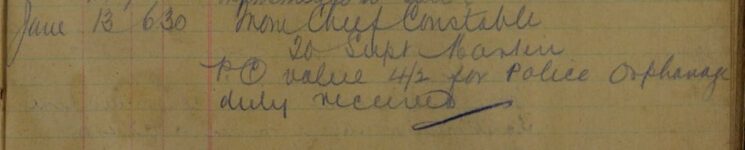 June 13 630 From Chief Constable
To Supt Martin
P.O value 4/2 for Police Orphanage
duly received